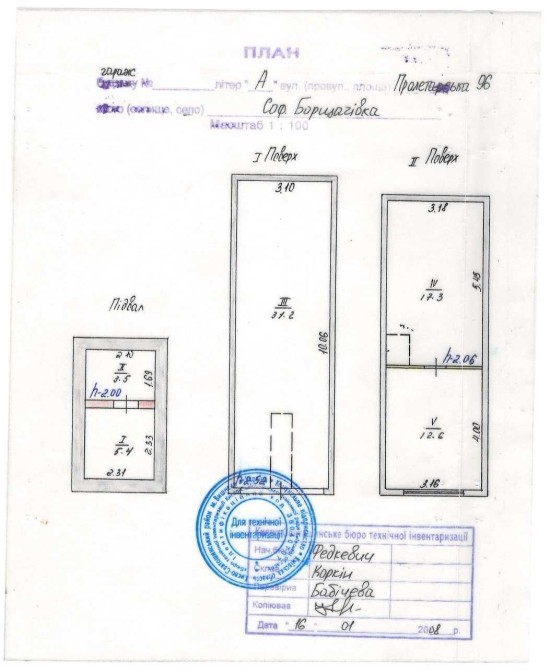 ПЛАН
гараж
№ літер " А " вул. (провул., площа) Пролетарська 96
(селище, село) Соф. Борщагівка
Масштаб 1 : 100
I Поверх
II Поверх
Підвал
3.10
III
31.2
10.06
h-2.50
3.18
IV
17.3
5.45
h-2.06
V
12.6
4.00
3.16
2.10
II
3.5
1.69
h-2.00
I
5.4
2.33
2.31
Для технічної
інвентаризації
бюро технічної інвентаризації
Нач. Федкевич
Коркін
Перевірив Бабічева
Копіював
Дата " 16 " 01 2008 р.